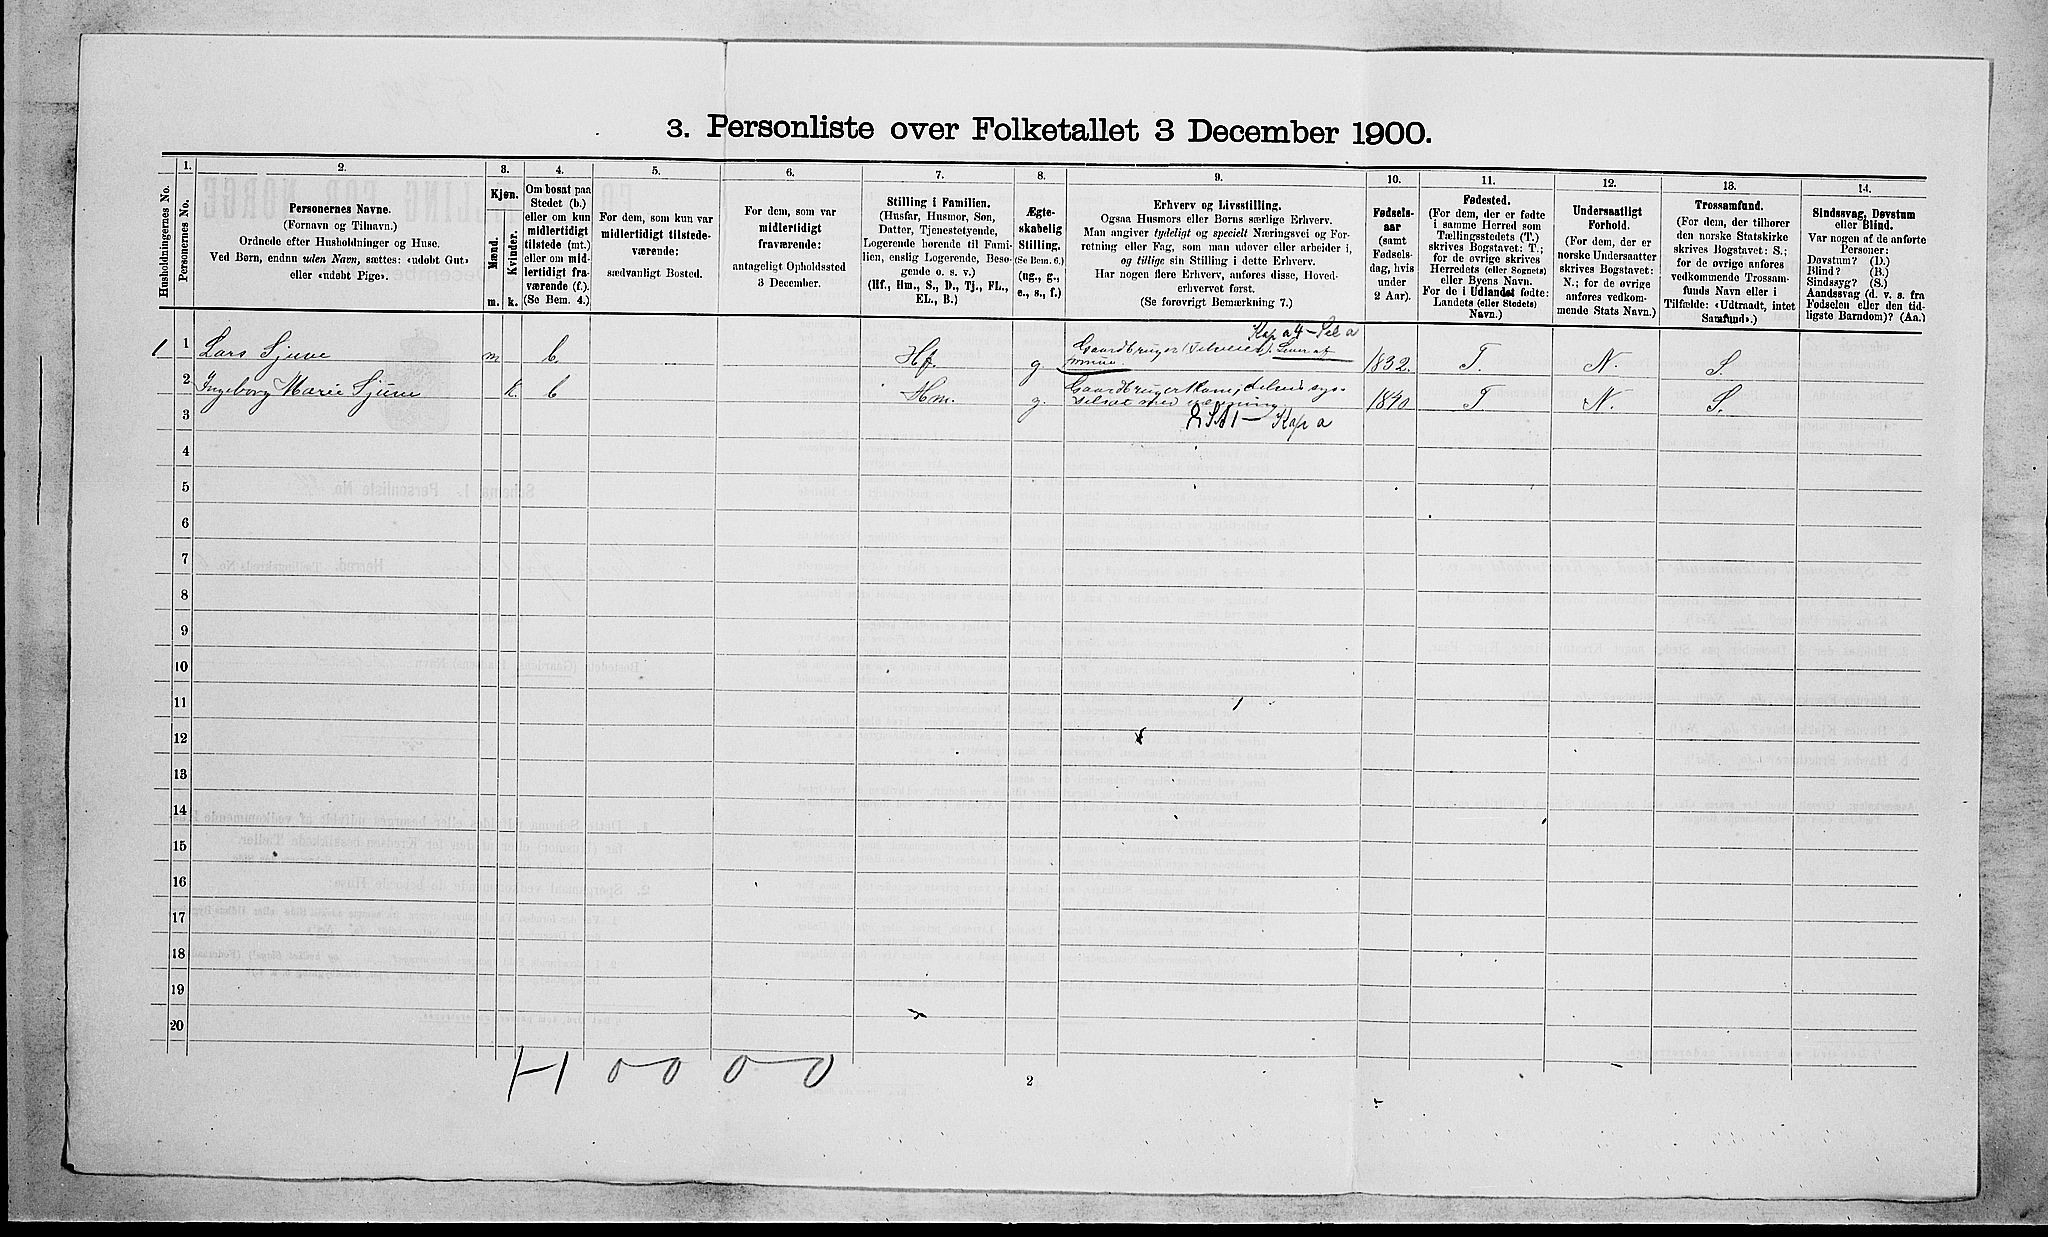 3. Personliste over Folketallet 3 December 1900.
Husholdningernes No.
1.
Personernes No.
2.
Personernes Navne.
(Fornavn og Tilnavn.)
Ordnede efter Husholdninger og Huse.
Ved Børn, endnu uden Navn, sættes: «udøbt Gut»
eller «udøbt Pige».
3.
Kjøn.
Mænd.
Kvinder.
m.
k.
4.
Om bosat paa
Stedet (b.)
eller om kun
midlertidigt
tilstede (mt.)
eller om mid-
lertidigt fra-
værende (f.).
(Se Bem. 4.)
5.
For dem, som kun var
midlertidigt tilstede-
værende:
sædvanligt Bosted.
6.
For dem, som var
midlertidigt
fraværende:
antageligt Opholdssted
3 December.
7.
Stilling i Familien.
(Husfar, Husmor, Søn,
Datter, Tjenestetyende,
Logerende hørende til Fami-
lien, enslig Logerende, Besø-
gende o. s. v.)
(Hf., Hm., S., D., Tj., FL.,
EL., B.)
8.
Ægte-
skabelig
Stilling.
(Se Bem. 6.)
(ug., g.,
e., s., f.)
9.
Erhverv og Livsstilling.
Ogsaa Husmors eller Børns særlige Erhverv.
Man angiver tydeligt og specielt Næringsvei og For-
retning eller Fag, som man udøver eller arbeider i,
og tillige sin Stilling i dette Erhverv.
Har nogen flere Erhverv, anføres disse, Hoved-
erhvervet først.
(Se forøvrigt Bemærkning 7.)
10.
Fødsels-
aar
(samt
Fødsels-
dag, hvis
under
2 Aar).
11.
Fødested.
(For dem, der er fødte
i samme Herred som
Tællingsstedets (T.)
skrives Bogstavet: T.;
for de øvrige skrives
Herredets (eller Sognets)
eller Byens Navn.
For de i Udlandet fødte:
Landets (eller Stedets)
Navn.)
12.
Undersaatligt
Forhold.
(For dem, der er
norske Undersaatter
skrives Bogstavet:
N.; for de øvrige
anføres vedkom-
mende Stats Navn.)
13.
Trossamfund.
(For dem, der tilhører
den norske Statskirke
skrives Bogstavet: S.;
for de øvrige anføres
vedkommende Trossam-
funds Navn eller i
Tilfælde: «Udtraadt, intet
Samfund».)
14.
Sindssvag, Døvstum
eller Blind.
Var nogen af de anførte
Personer:
Døvstum? (D.)
Blind? (B.)
Sindssyg? (S.)
Aandssvag (d. v. s. fra
Fødselen eller den tid-
ligste Barndom)? (Aa.)
Kap a
1 1 Lars m b. Hf. g Gaardbruger 1832. T. N. S
2 Ingeborg Marie k. b Hm. g. 1840 T N. S.
3 Kap a
4
5
6
7
8
9
10
11
12
13
14
15
16
17
18
19
20
0 0 0 0
2